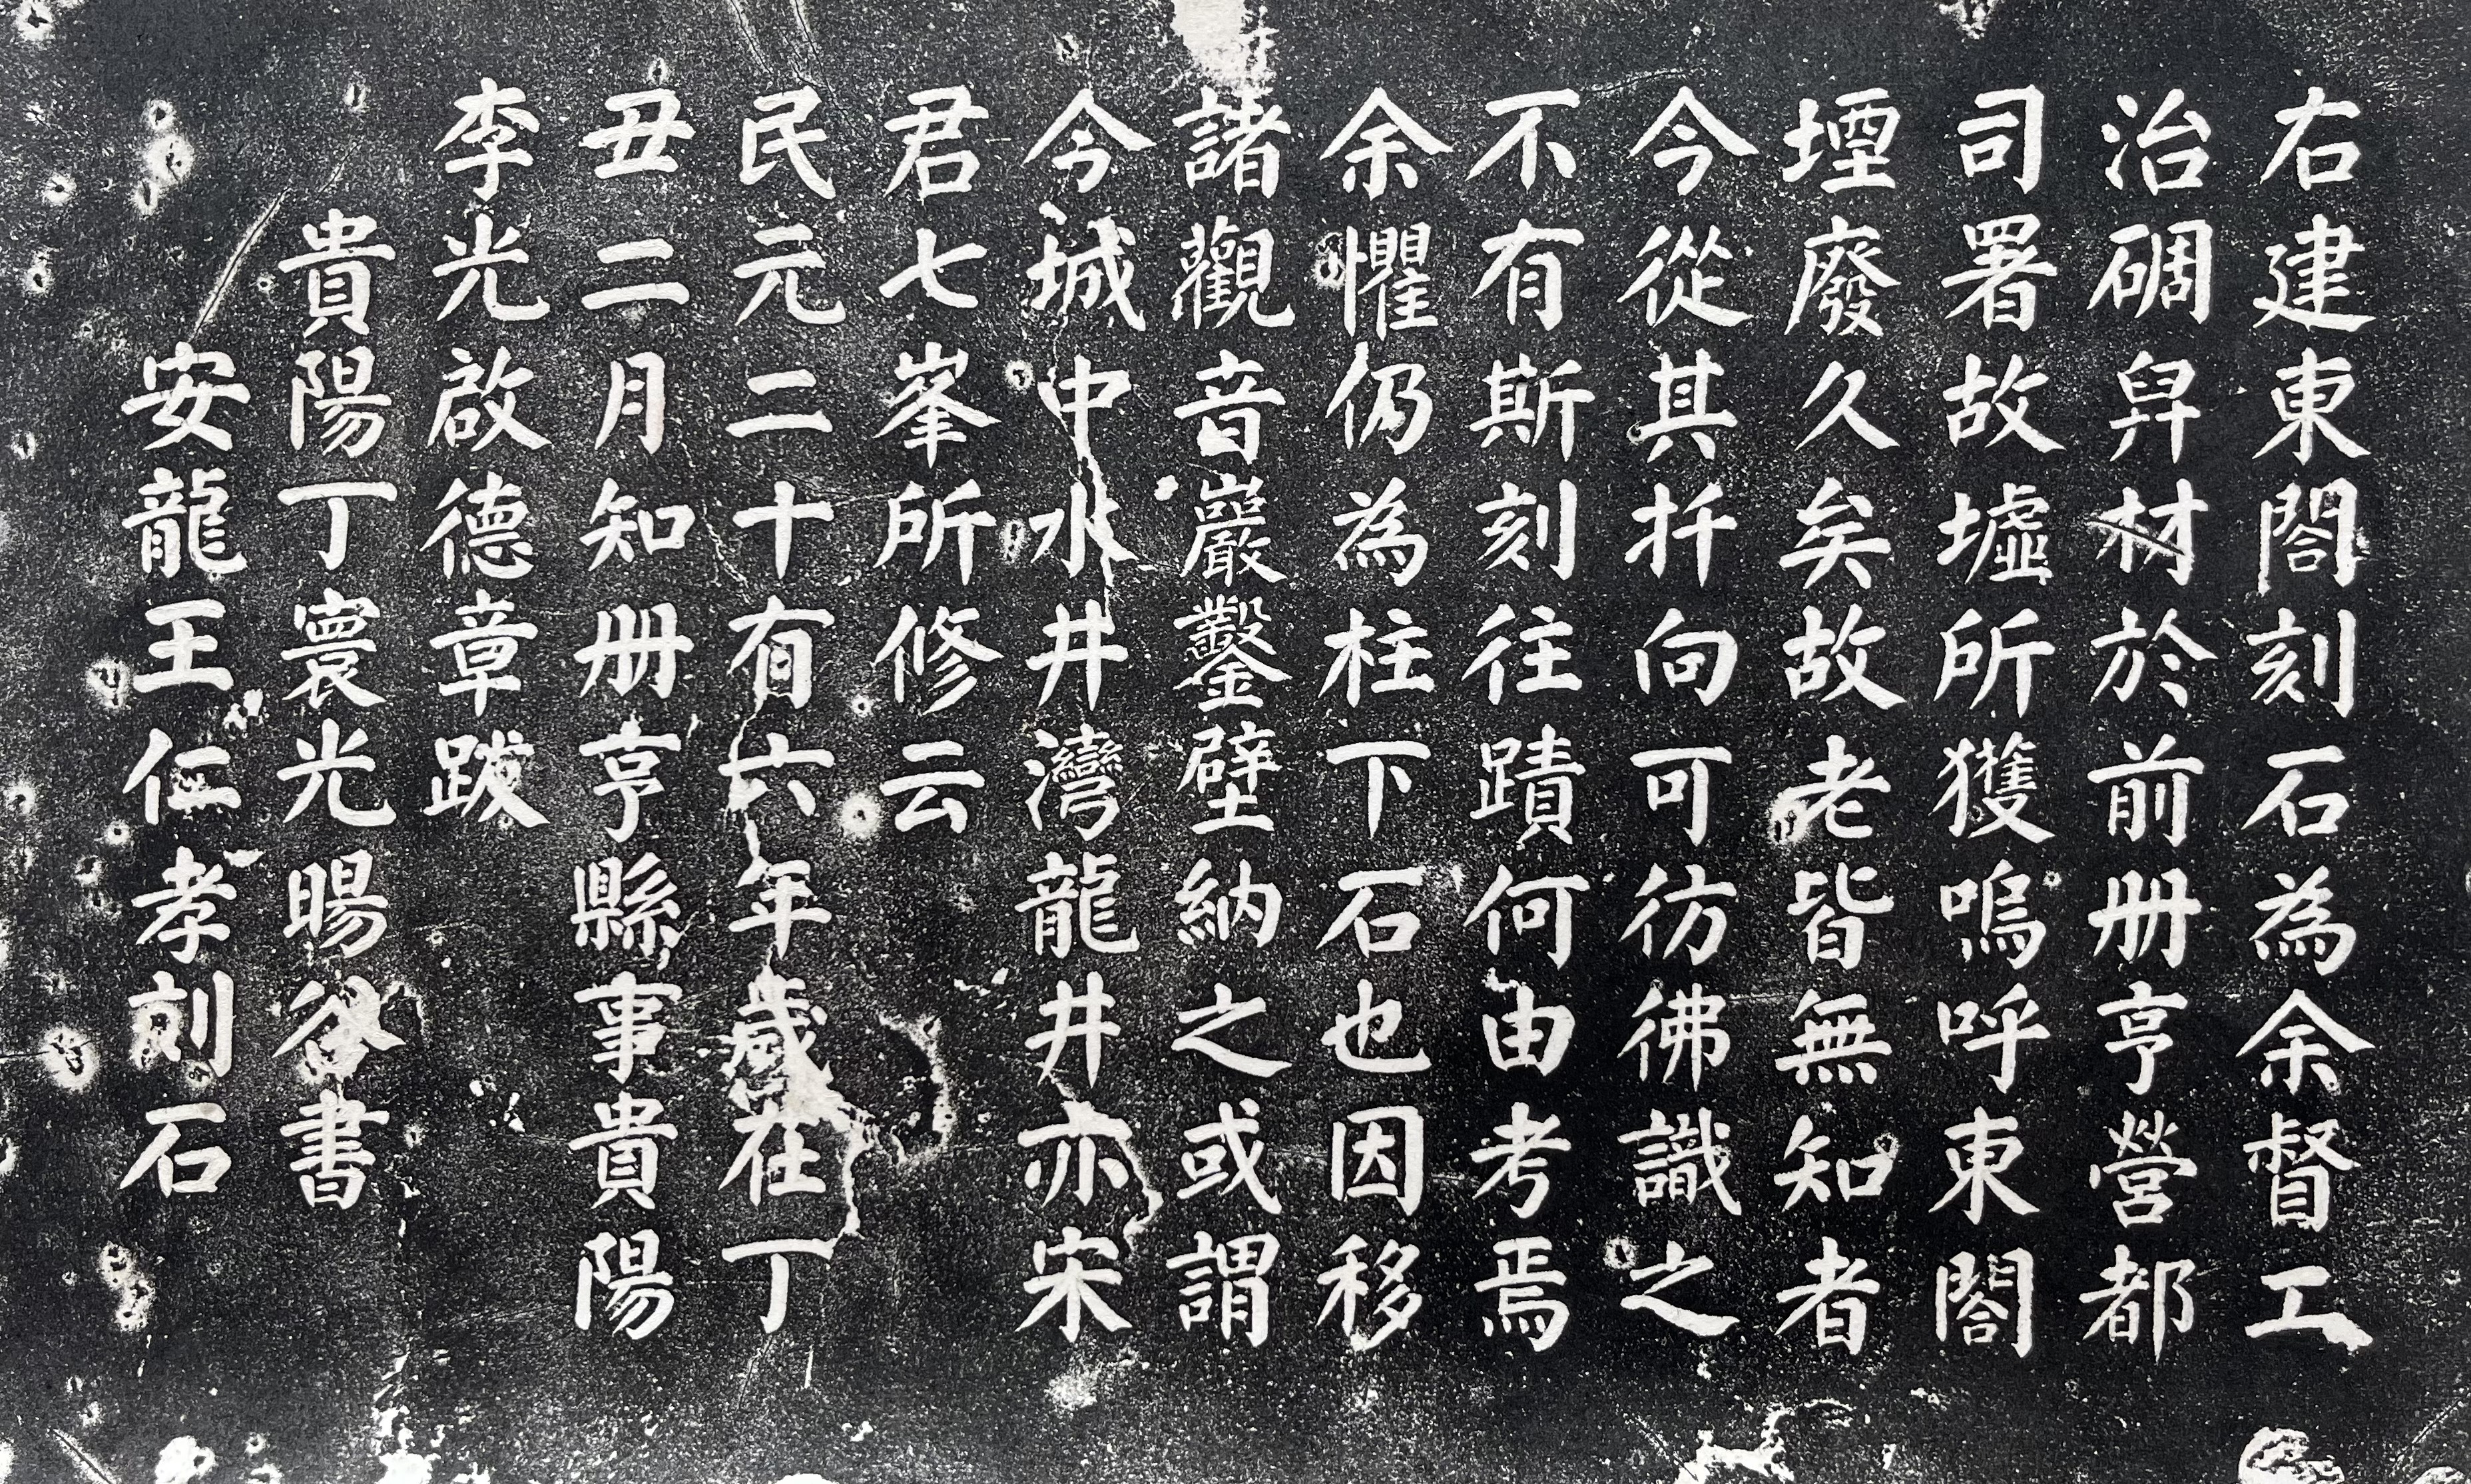 右建東閤刻石為余督工
治碉舁材於前册亨營都
司署故墟所獲嗚呼東閤
堙廢久矣故老皆無知者
今從其扦向可彷彿識之
不有斯刻往蹟何由考焉
余懼仍為柱下石也因移
諸觀音巖鑿壁納之或謂
今城中水井灣龍井亦宋
君七峯所修云
民元二十有六年歲在丁
丑二月知册亨縣事貴陽
李光啟德章跋
貴陽丁寰光暘谷書
安龍王仁孝刻石